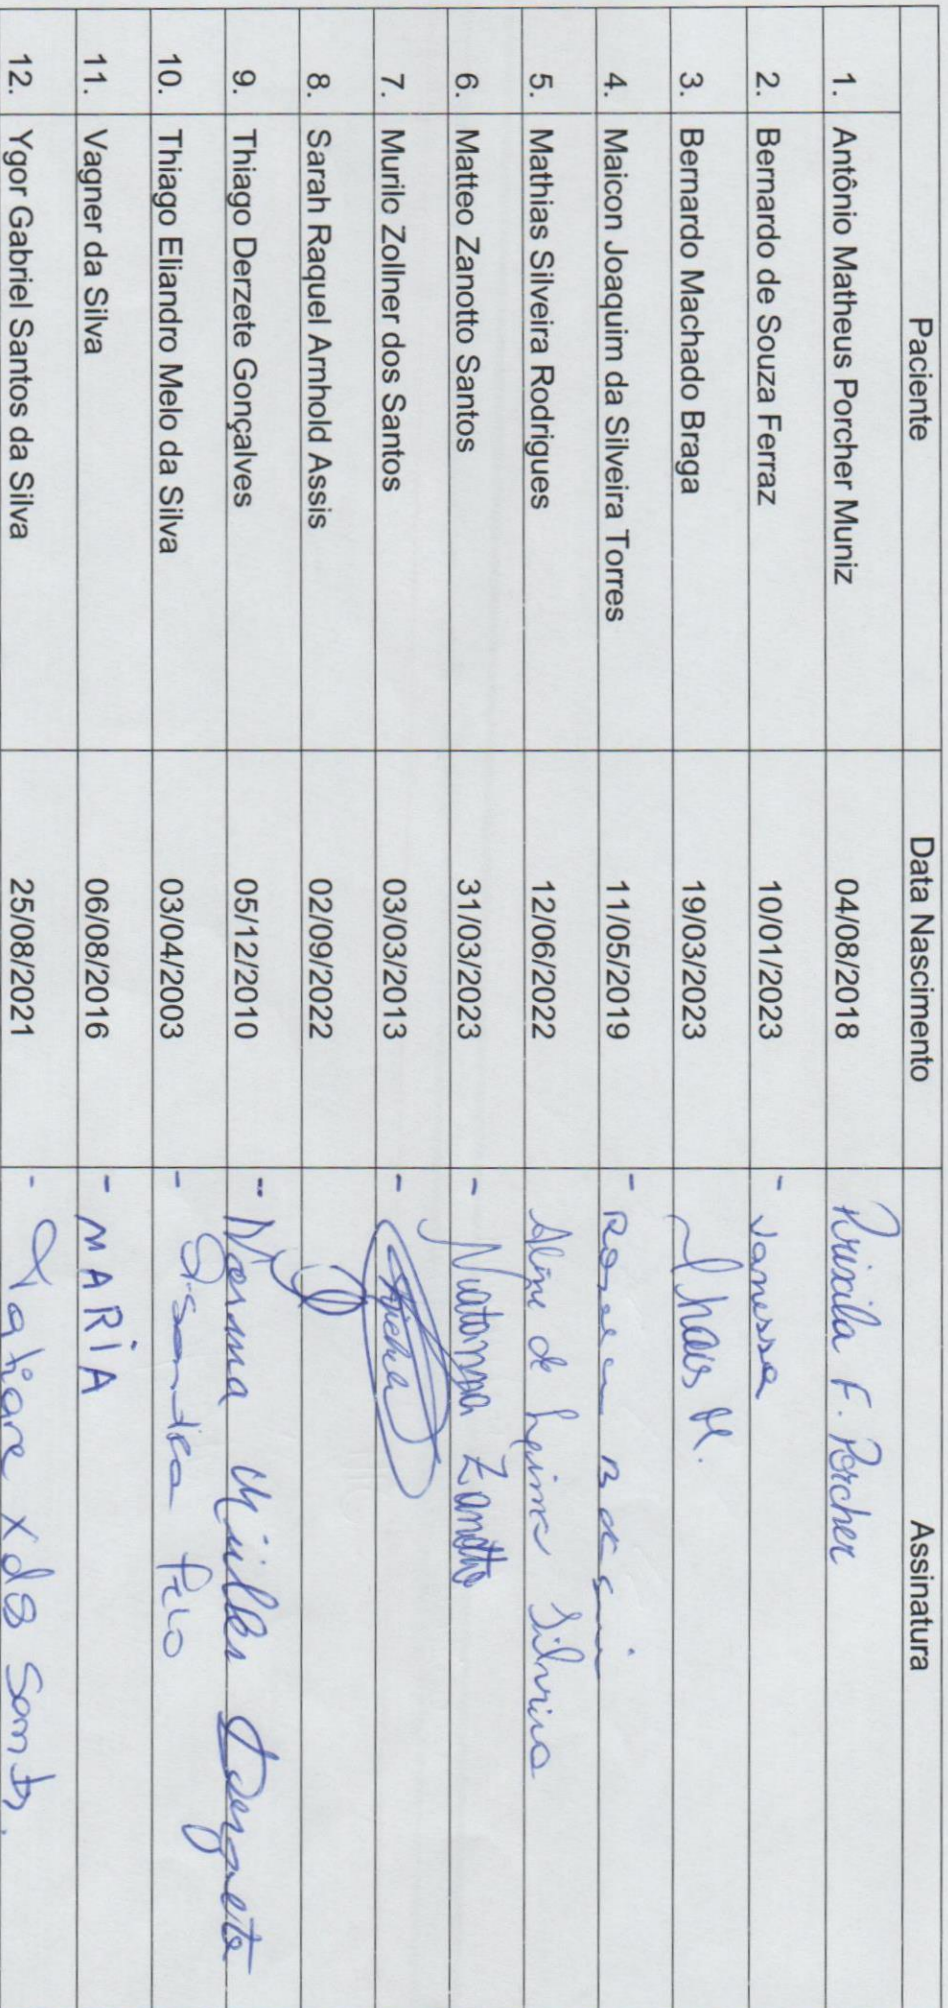 Paciente Data Nascimento Assinatura
1. Antônio Matheus Porcher Muniz 04/08/2018 Priscila F. Porcher
2. Bernardo de Souza Ferraz 10/01/2023 - Vanessa
3. Bernardo Machado Braga 19/03/2023 Thais M.
4. Maicon Joaquim da Silveira Torres 11/05/2019 -
5. Mathias Silveira Rodrigues 12/06/2022 Aline de Silveira
6. Matteo Zanotto Santos 31/03/2023 - Zanotto
7. Murilo Zollner dos Santos 03/03/2013 -
8. Sarah Raquel Arnhold Assis 02/09/2022
9. Thiago Derzete Gonçalves 05/12/2010 -- Norma Müller Derzete
10. Thiago Eliandro Melo da Silva 03/04/2003 -
11. Vagner da Silva 06/08/2016 - MARIA
12. Ygor Gabriel Santos da Silva 25/08/2021 - Tatiane X dos Santos.